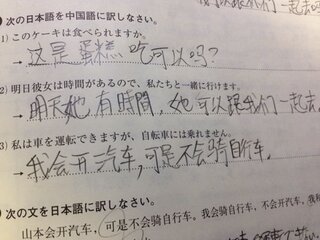 次の日本語を中国語に訳しなさい。
1) このケーキは食べられますか。
这是蛋糕 吃可以吗?
2) 明日彼女は時間があるので、私たちと一緒に行けます。
明天她有時間，她可以跟我们一起去。
3) 私は車を運転できますが、自転車には乗れません。
我会开汽车,可是不会骑自行车.
次の文を日本語に訳しなさい。
山本会开汽车，可是不会骑自行车。我会骑自行车，不会开汽车，我和